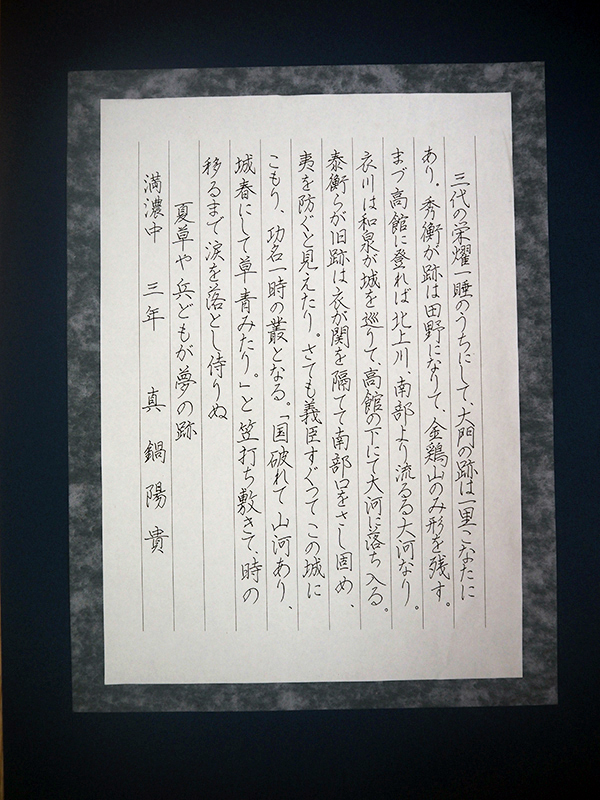 三代の栄耀一睡のうちにして、大門の跡は一里こなたに
あり。秀衡が跡は田野になりて、金鶏山のみ形を残す。
まづ高館に登れば北上川、南部より流るる大河なり。
衣川は和泉が城を巡りて、高館の下にて大河に落ち入る。
泰衡らが旧跡は衣が関を隔てて南部口をさし固め、
夷を防ぐと見えたり。さても義臣すぐつてこの城に
こもり、功名一時の叢となる。「国破れて山河あり、
城春にして草青みたり。」と笠打ち敷きて、時の
移るまで涙を落とし侍りぬ
夏草や兵どもが夢の跡
満濃中 三年 真鍋陽貴